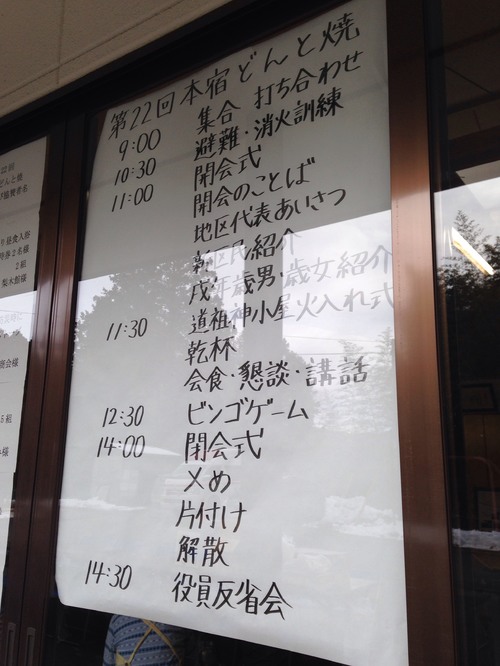 第22回本宿どんと焼
9:00 集合 打ち合わせ
10:30 避難・消火訓練
11:00 開会式
開会のことば
地区代表あいさつ
新区民紹介
戌年歳男・歳女紹介
11:30 道祖神小屋火入れ式
乾杯
会食・懇談・講話
12:30 ビンゴゲーム
14:00 閉会式
〆め
片付け
解散
14:30 役員反省会